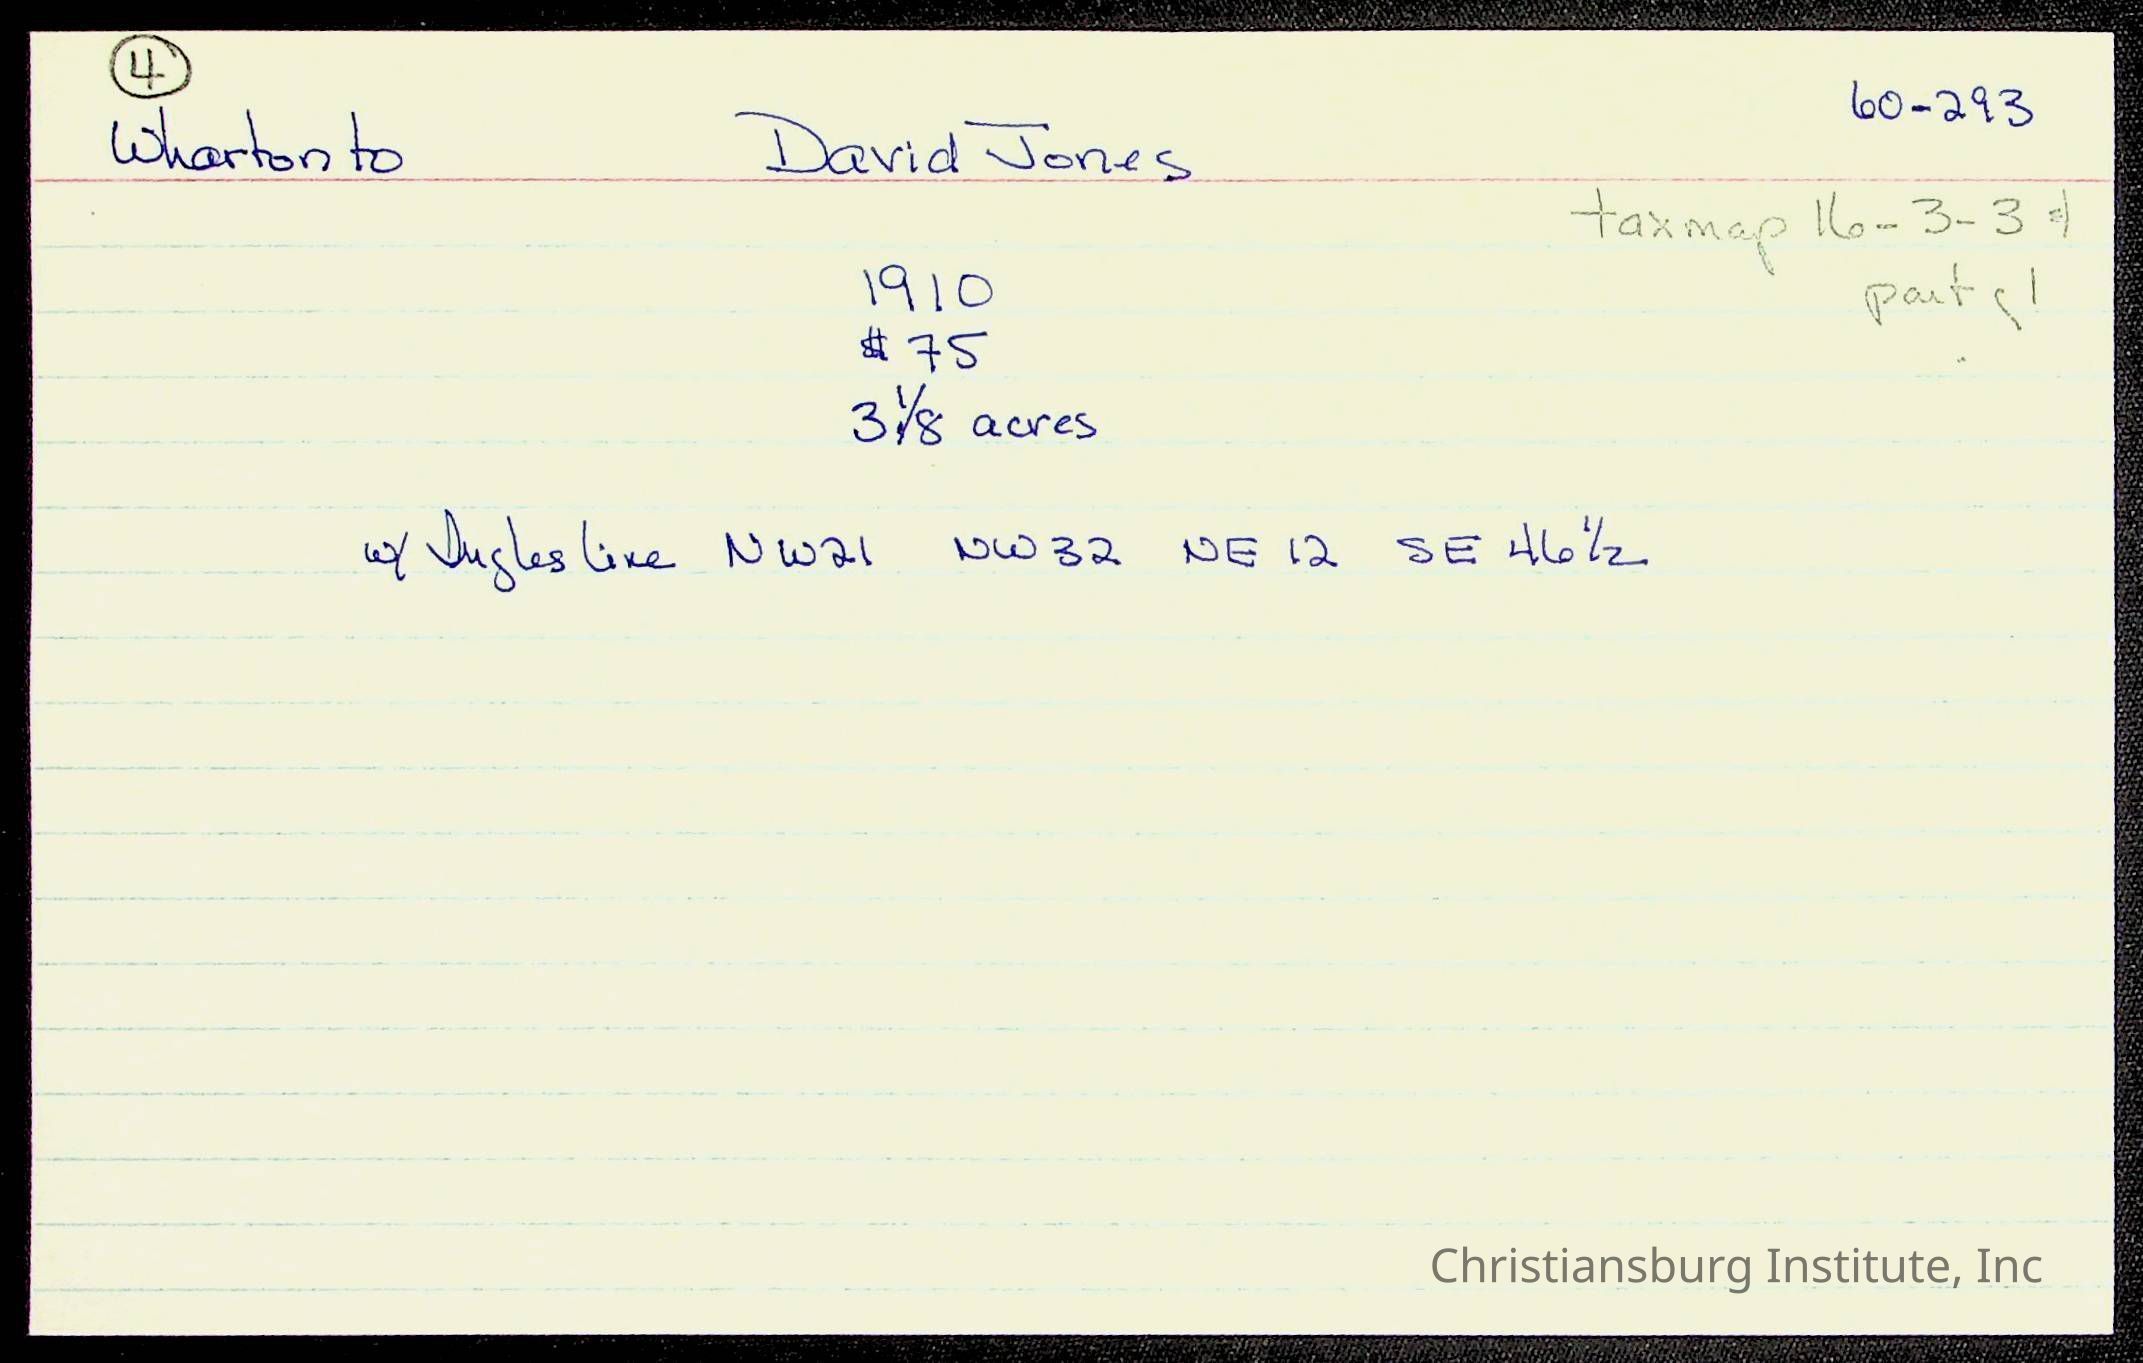 ④
60-293
Wharton to David Jones
taxmap 16-3-3 &
part of 1
1910
$75
3 1/8 acres
w/ Ingles line NW21 NW32 NE 12 SE 46 1/2
Christiansburg Institute, Inc